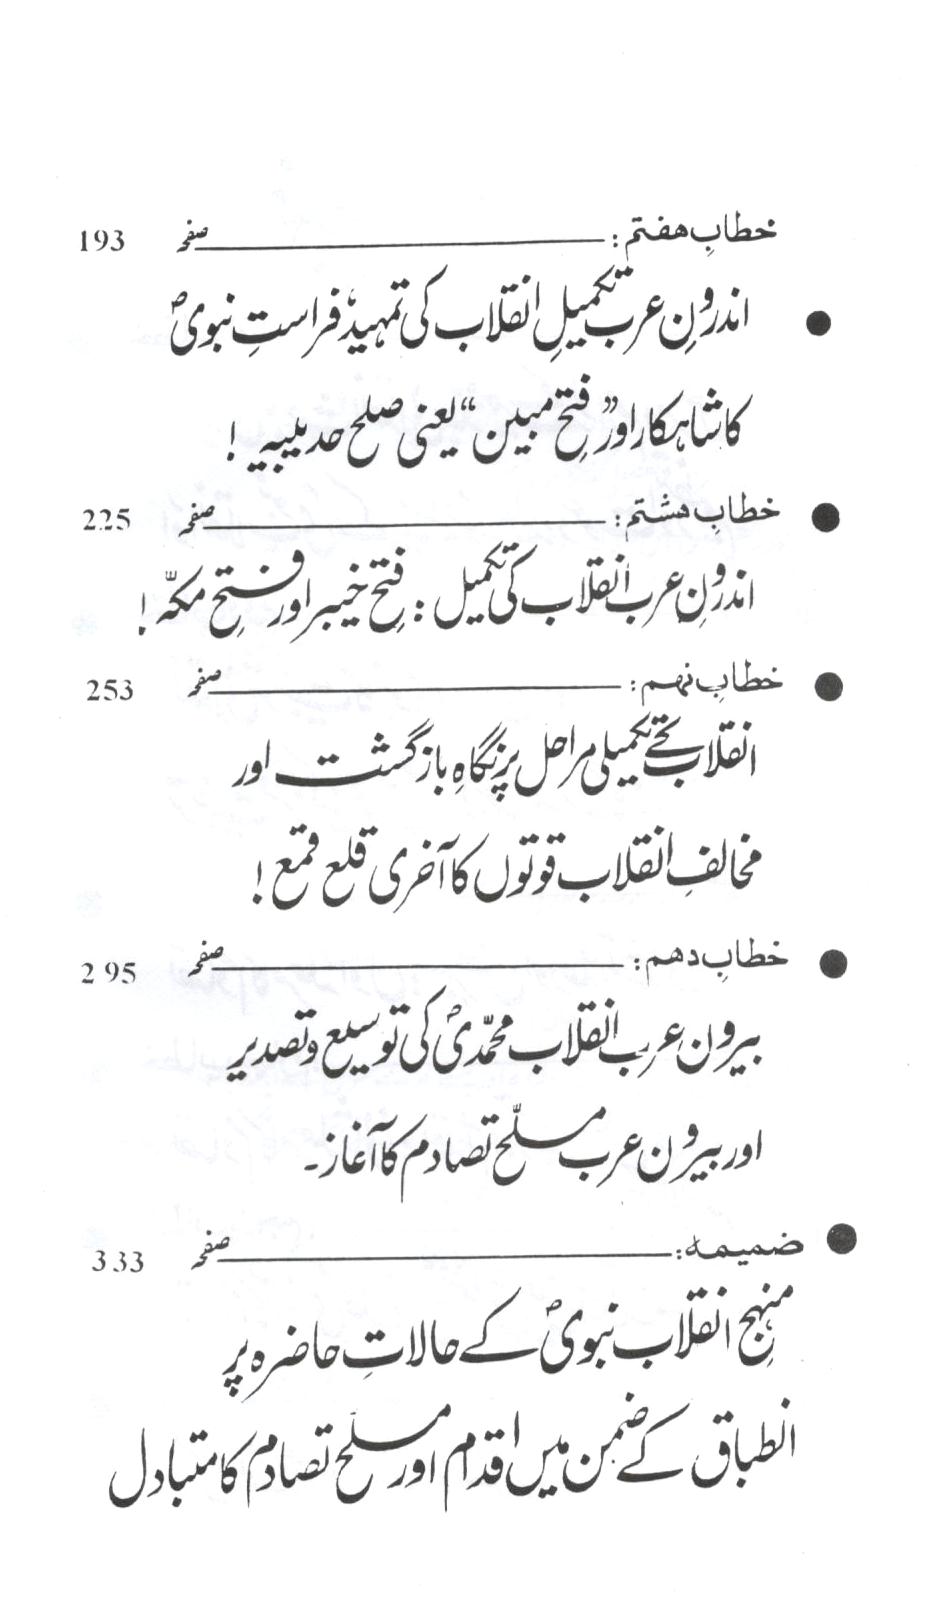 خطابِ ہفتم: صفحہ 193
● اندرونِ عرب تکمیلِ انقلاب کی تمہید، فراستِ نبویؐ
کا شاہکار اور ”فتحِ مبین“ یعنی صلح حدیبیہ!
● خطابِ ہشتم: صفحہ 225
اندرونِ عرب انقلاب کی تکمیل: فتحِ خیبر اور فتحِ مکہّ!
● خطابِ نہم: صفحہ 253
انقلاب کے تکمیلی مراحل پر نگاہِ بازگشت اور
مخالفِ انقلاب قوتوں کا آخری قلع قمع!
● خطابِ دہم: صفحہ 295
بیرون عرب انقلاب محمّدیؐ کی توسیع و تصدیر
اور بیرون عرب مسلّح تصادم کا آغاز۔
● ضمیمہ: صفحہ 333
منہجِ انقلاب نبویؐ کے حالاتِ حاضرہ پر
انطباق کے ضمن میں اقدام اور مسلح تصادم کا متبادل